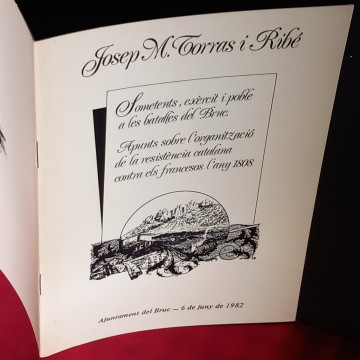 Josep M. Torras i Ribé
Sometents, exèrcit i poble
a les batalles del Bruc.
Apunts sobre l'organització
de la resistència catalana
contra els francesos l'any 1808
Ajuntament del Bruc — 6 de juny de 1982